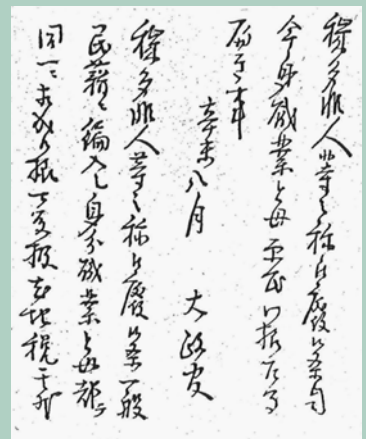 穢多非人等之称被廃候条自
今身分職業共平民同様たる
へき事
辛未八月 大政官
穢多非人等之称被廃候条一般
民籍ニ編入し身分職業共都て
同一ニ相成候様可取扱尤地租其外